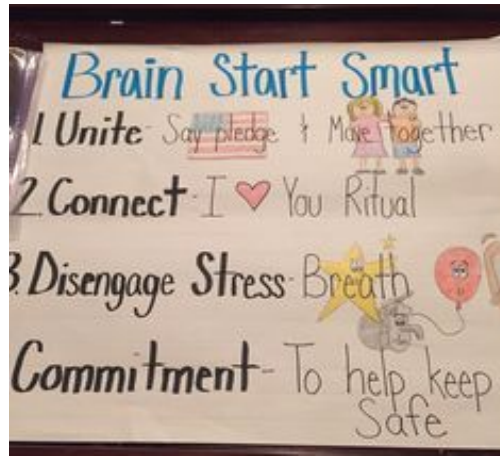 Brain Start Smart
1. Unite - Say pledge & Move together
2. Connect - I ♥ You Ritual
3. Disengage Stress - Breath
Commitment - To help keep
Safe